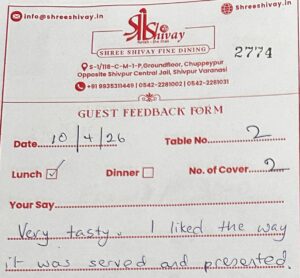 info@shreeshivay.in
Shreeshivay.in
Shivay
SHREE SHIVAY FINE DINING
2774
S-1/116-C-M-1-P, Groundfloor, Chuppeypur
Opposite Shivpur Central Jail, Shivpur Varanasi
+91 9935311449 | 0542-2281002 | 0542-2281031
GUEST FEEDBACK FORM
Date 10/4/26 Table No. 2
Lunch ✓ Dinner No. of Cover. 2
Your Say
Very tasty. I liked the way
it was served and presented